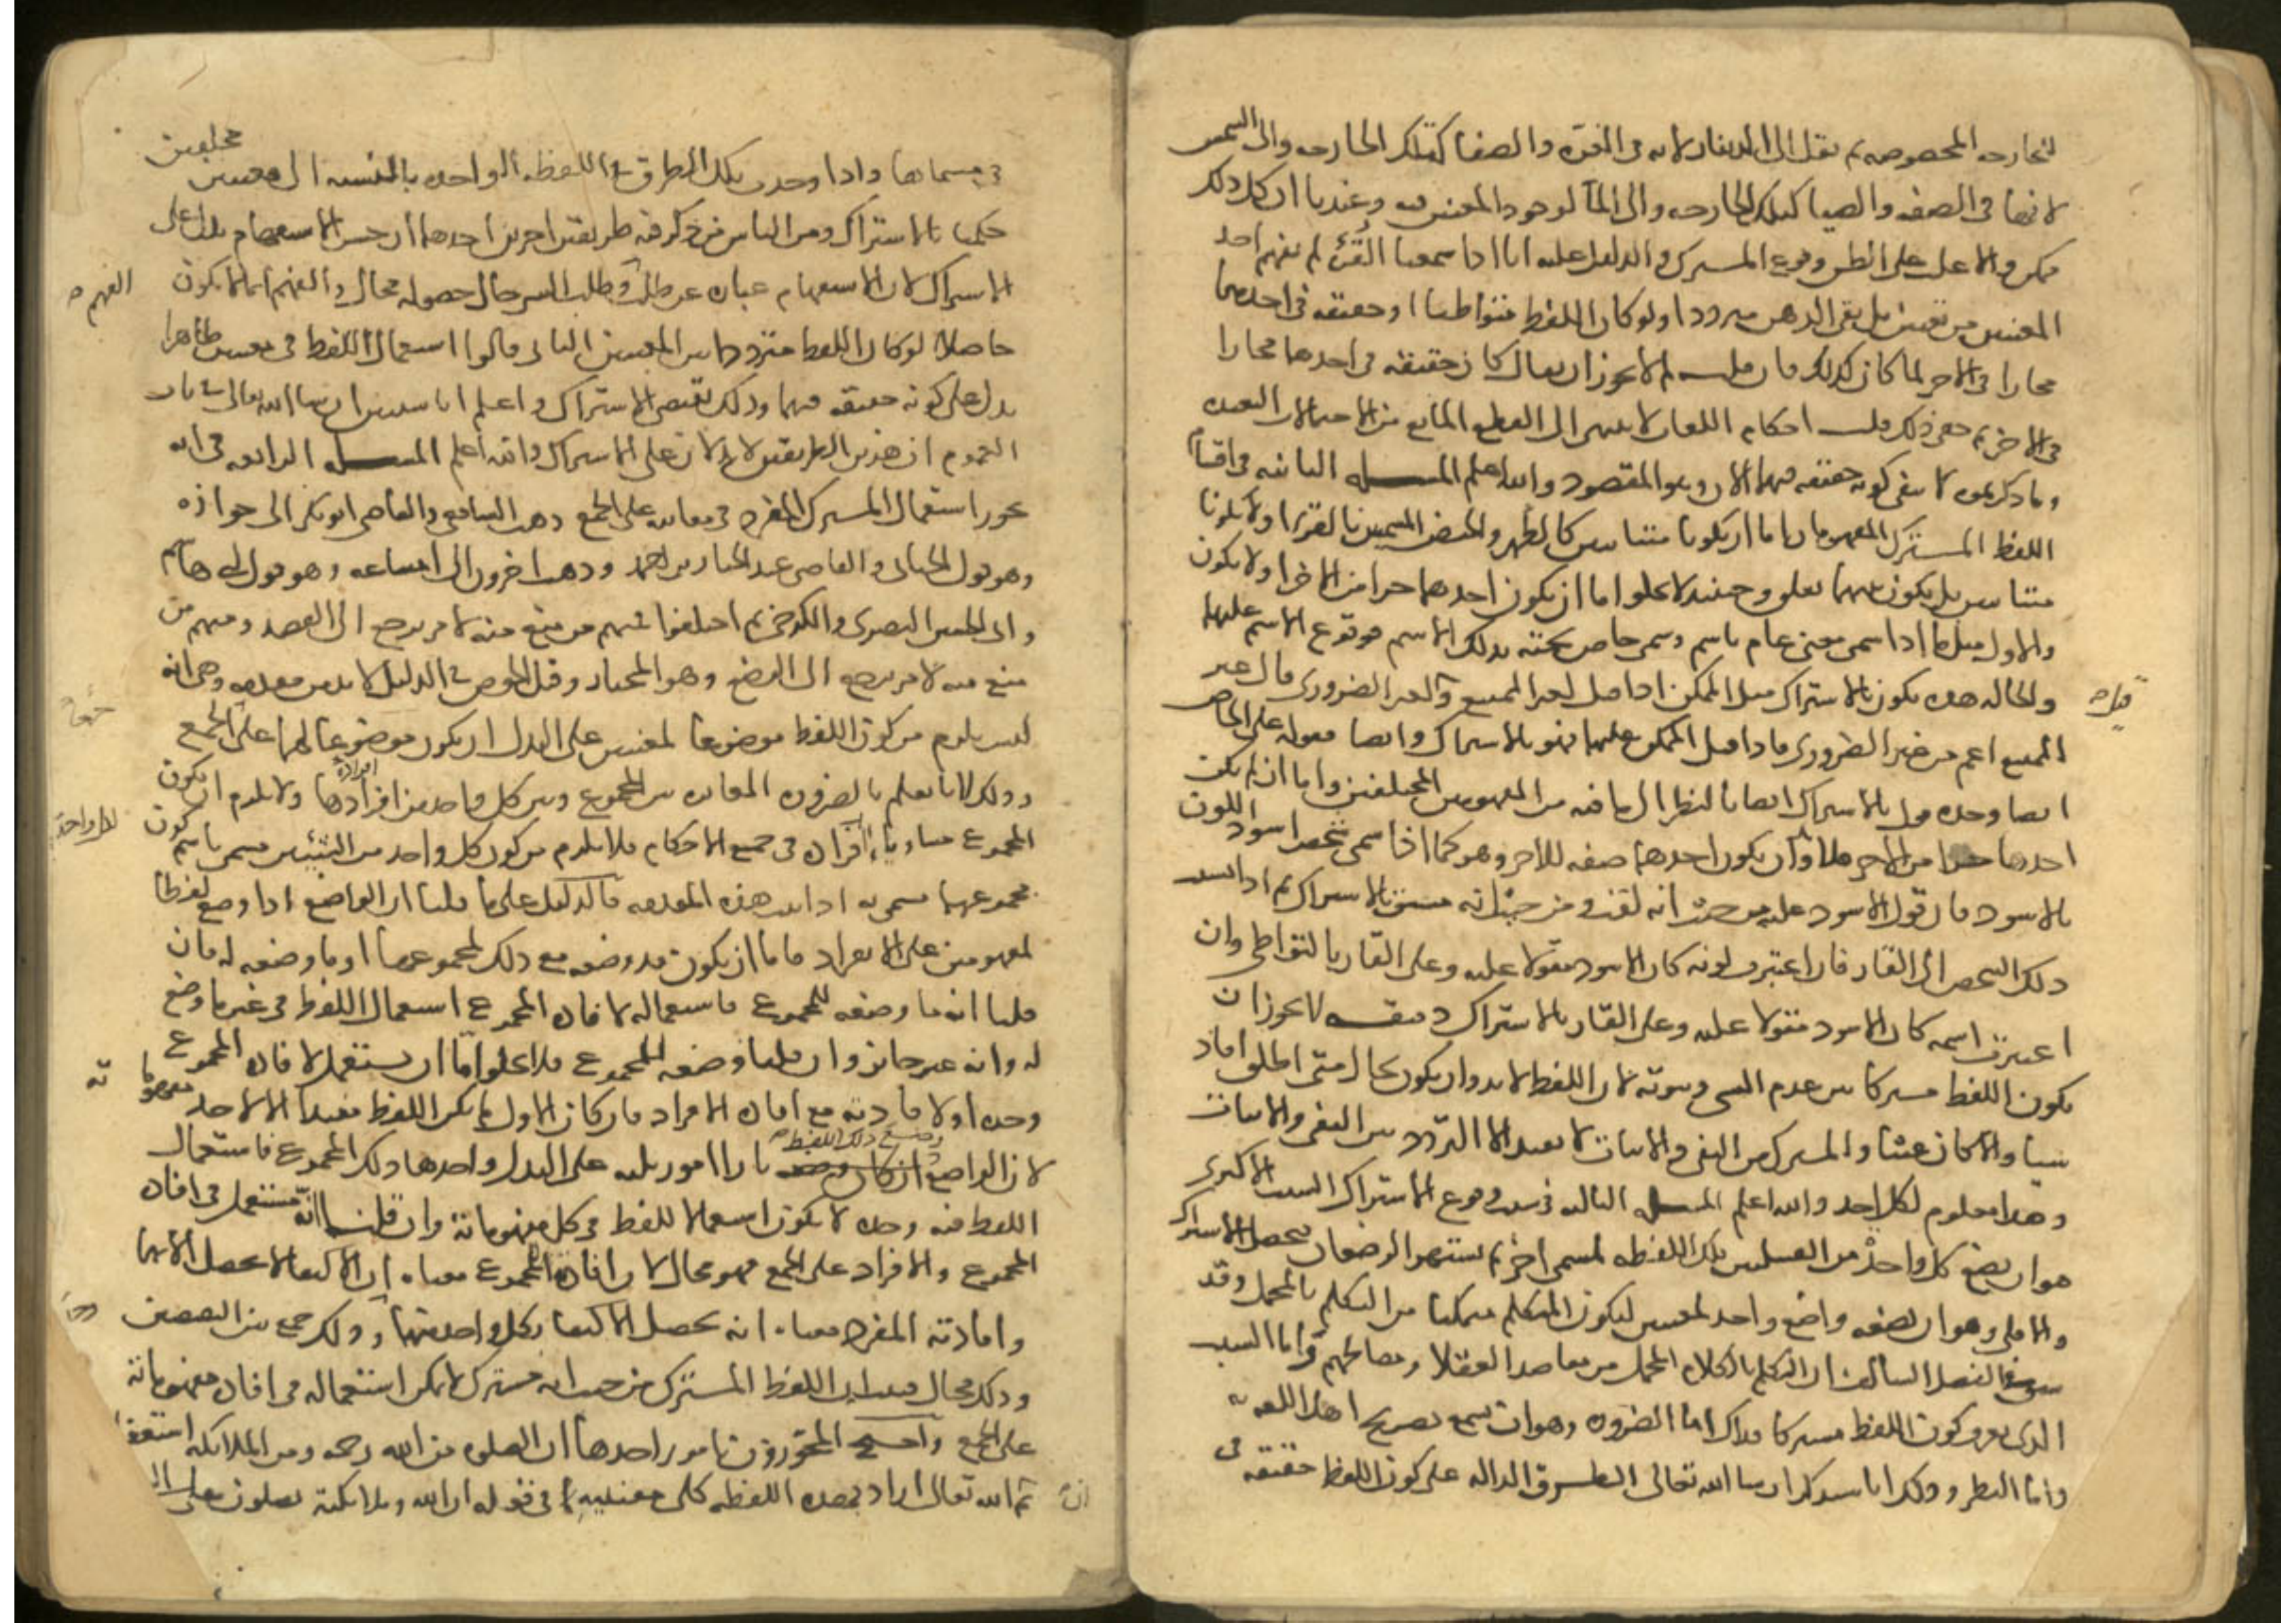 للجارحه المخصوصه ثم نقل الى الدينار لانه فى العزه والصفا كتلك الجارحه والى الشمس
لانها فى الصفه والضيا كتلك الجارحه والى المآ لوجود المعنيين فيه وعندنا ان كل ذلك
ممكن والاغلب على الظن وقوع المشترك والدليل عليه انا اذا سمعنا القُرْء لم نفهم احد
المعنيين من تعيين بل بقى الذهن مترددا ولو كان اللفظ متواطيا او حقيقه فى احدهما
مجازا فى الاخر لما كان كذلك فان قلت لم لا يجوز ان يقال كان حقيقه فى احدهما مجازا
فى الاخر ثم خفى ذلك قلت احكام اللغات لا تنتهى الى القطع المانع من الاحتمالات البعيده
وما ذكرتموه لا ينفى كونه حقيقه فيهما الان وهو المقصود والله اعلم المسله الثانيه فى اقسام
اللفظ المشترك المفهومان اما ان يكونا متباينين كالطهر والحيض المسميين بالقرء او لا يكونا
متباينين بل يكون بينهما تعلق وحينئذ لا يخلو اما ان يكون احدهما جزا من الاخر او لا يكون
والاول مثل ما اذا سمى معنى عام باسم وسمى خاص تحته بذلك الاسم فوقوع الاسم عليهما
والحاله هذه يكون بالاشتراك مثل الممكن اذا قيل لغير الممتنع ولغير الضرورى فان غير
الممتنع اعم من غير الضرورى فاذا قيل الممكن عليهما فهو بالاشتراك وايضا مقوله على الخاص
ايضا وحده قول بالاشتراك ايضا بالنظر الى ما فيه من المفهومين المختلفين واما ان لم يكن
احدهما جزا من الاخر فلا وان يكون احدهما صفه للاخر وهو كما اذا سمى شخص اسود اللون
بالاسود فان قول الاسود عليه من حيث انه لقبه ومن حيث انه مشتق بالاشتراك ثم اذا نسب
ذلك الشخص الى القار فان اعتبرت لونه كان الاسود مقولا عليه وعلى القار بالتواطى وان
اعتبرت اسمه كان الاسود مقولا عليه وعلى القار بالاشتراك دقيقه لا يجوز ان
يكون اللفظ مشتركا بين عدم الشى وثبوته لان اللفظ لا بد وان يكون بحال متى اطلق افاد
شيا والا كان عبثا والمشترك بين النفى والاثبات لا يفيد الا التردد بين النفى والاثبات
وهذا معلوم لكل احد والله اعلم المسله الثالثه فى سبب وقوع الاشتراك السبب الاكثرى
هو ان يضع كل واحد من القبيلتين تلك اللفظه لمسمى اخر ثم يشتهر الوضعان فيحصل الاشتراك
والاقلى هو ان يضعه واضع واحد لمعنيين ليكون المتكلم متمكنا من التكلم بالمجمل وقد
سبق فى الفصل السالف ان التكلم بالكلام المجمل من مقاصد العقلا ومصالحهم واما السبب
الذى يعرف كون اللفظ مشتركا فذاك اما الضروره وهو ان نسمع تصريح اهل اللغه به
واما النظر وذلك انا سنذكر ان شا الله تعالى الطرق الداله على كون اللفظ حقيقه فى
قيل
فى مسماها واذا وجدت تلك الطرق فى اللفظه الواحده بالنسبه الى معنيين مختلفين
حكمنا بالاشتراك ومن الناس من ذكر فيه طريقتين اخريين احدهما ان حسن الاستفهام يدل على
الاشتراك لان الاستفهام عباره عن طلب الفهم وطلب الشى حال حصوله محال والفهم انما لا يكون
حاصلا لو كان اللفظ مترددا بين المعنيين الثانى قالوا استعمال اللفظ فى معنيين ظاهرا
يدل على كونه حقيقه فيهما وذلك يقتضى الاشتراك واعلم انا سنبين ان شا الله تعالى فى باب
العموم ان هذين الطريقين لا يدلان على الاشتراك والله اعلم المسله الرابعه فى انه
يجوز استعمال المشترك المفرد فى معانيه على الجمع ذهب الشافعى والقاضى ابو بكر الى جوازه
وهو قول الجبائى والقاضى عبد الجبار بن احمد وذهب اخرون الى امتناعه وهو قول ابى هاشم
وابى الحسين البصرى والكرخى ثم اختلفوا فمنهم من منع منه لامر يرجع الى القصد ومنهم من
منع منه لامر يرجع الى الوضع وهو المختار وقبل الخوض فى الدليل لا بد من مقدمه وهى انه
ليس يلزم من كون اللفظ موضوعا لمعنيين على البدل ان يكون موضوعا لهما على الجمع
وذلك لانا نعلم بالضروره المغايره بين المجموع وبين كل واحد من افرادها ولا يلزم ان يكون
المجموع مساويا لافراده فى جميع الاحكام فلا يلزم من كون كل واحد من الشيئين مسمى باسم كون
مجموعهما مسمى به اذا ثبت هذه المقدمه فالدليل على ما قلنا ان الواضع اذا وضع لفظا
لمفهومين على الانفراد فاما ان يكون قد وضعه مع ذلك لمجموعهما او ما وضعه له فان
قلنا انه ما وضعه للمجموع فاستعماله لافاده المجموع استعمال اللفظ فى غير ما وضع
له وانه غير جائز وان قلنا وضعه للمجموع فلا يخلو اما ان يستعمل لافاده المجموع
وحده او لافادته مع افاده الافراد فان كان الاول لم يكن اللفظ مفيدا الا لاحد مفهوماته
لان الواضع ان كان وضع ذلك اللفظ بازا امور ثلثه على البدل واحدها ذلك المجموع فاستعمال
اللفظ فيه وحده لا يكون استعمالا للفظ فى كل مفهوماته وان قلت انه مستعمل فى افاده
المجموع والافراد على الجمع فهو محال لان افاده المجموع معناه ان الاكتفا لا يحصل الا بهما
وافادته المفرد معناه انه يحصل الاكتفا بكل واحد منهما وذلك جمع بين النقيضين
وذلك محال فثبت ان اللفظ المشترك من حيث انه مشترك لا يمكن استعماله فى افاده مفهوماته
على الجمع واحتج المجوزون بامور احدها ان الصلوه من الله رحمه ومن الملائكه استغفار
ثم الله تعالى اراد بهذه اللفظه كلى معنييها فى قوله ان الله وملائكته يصلون على
الفهم
لكل واحد
ان